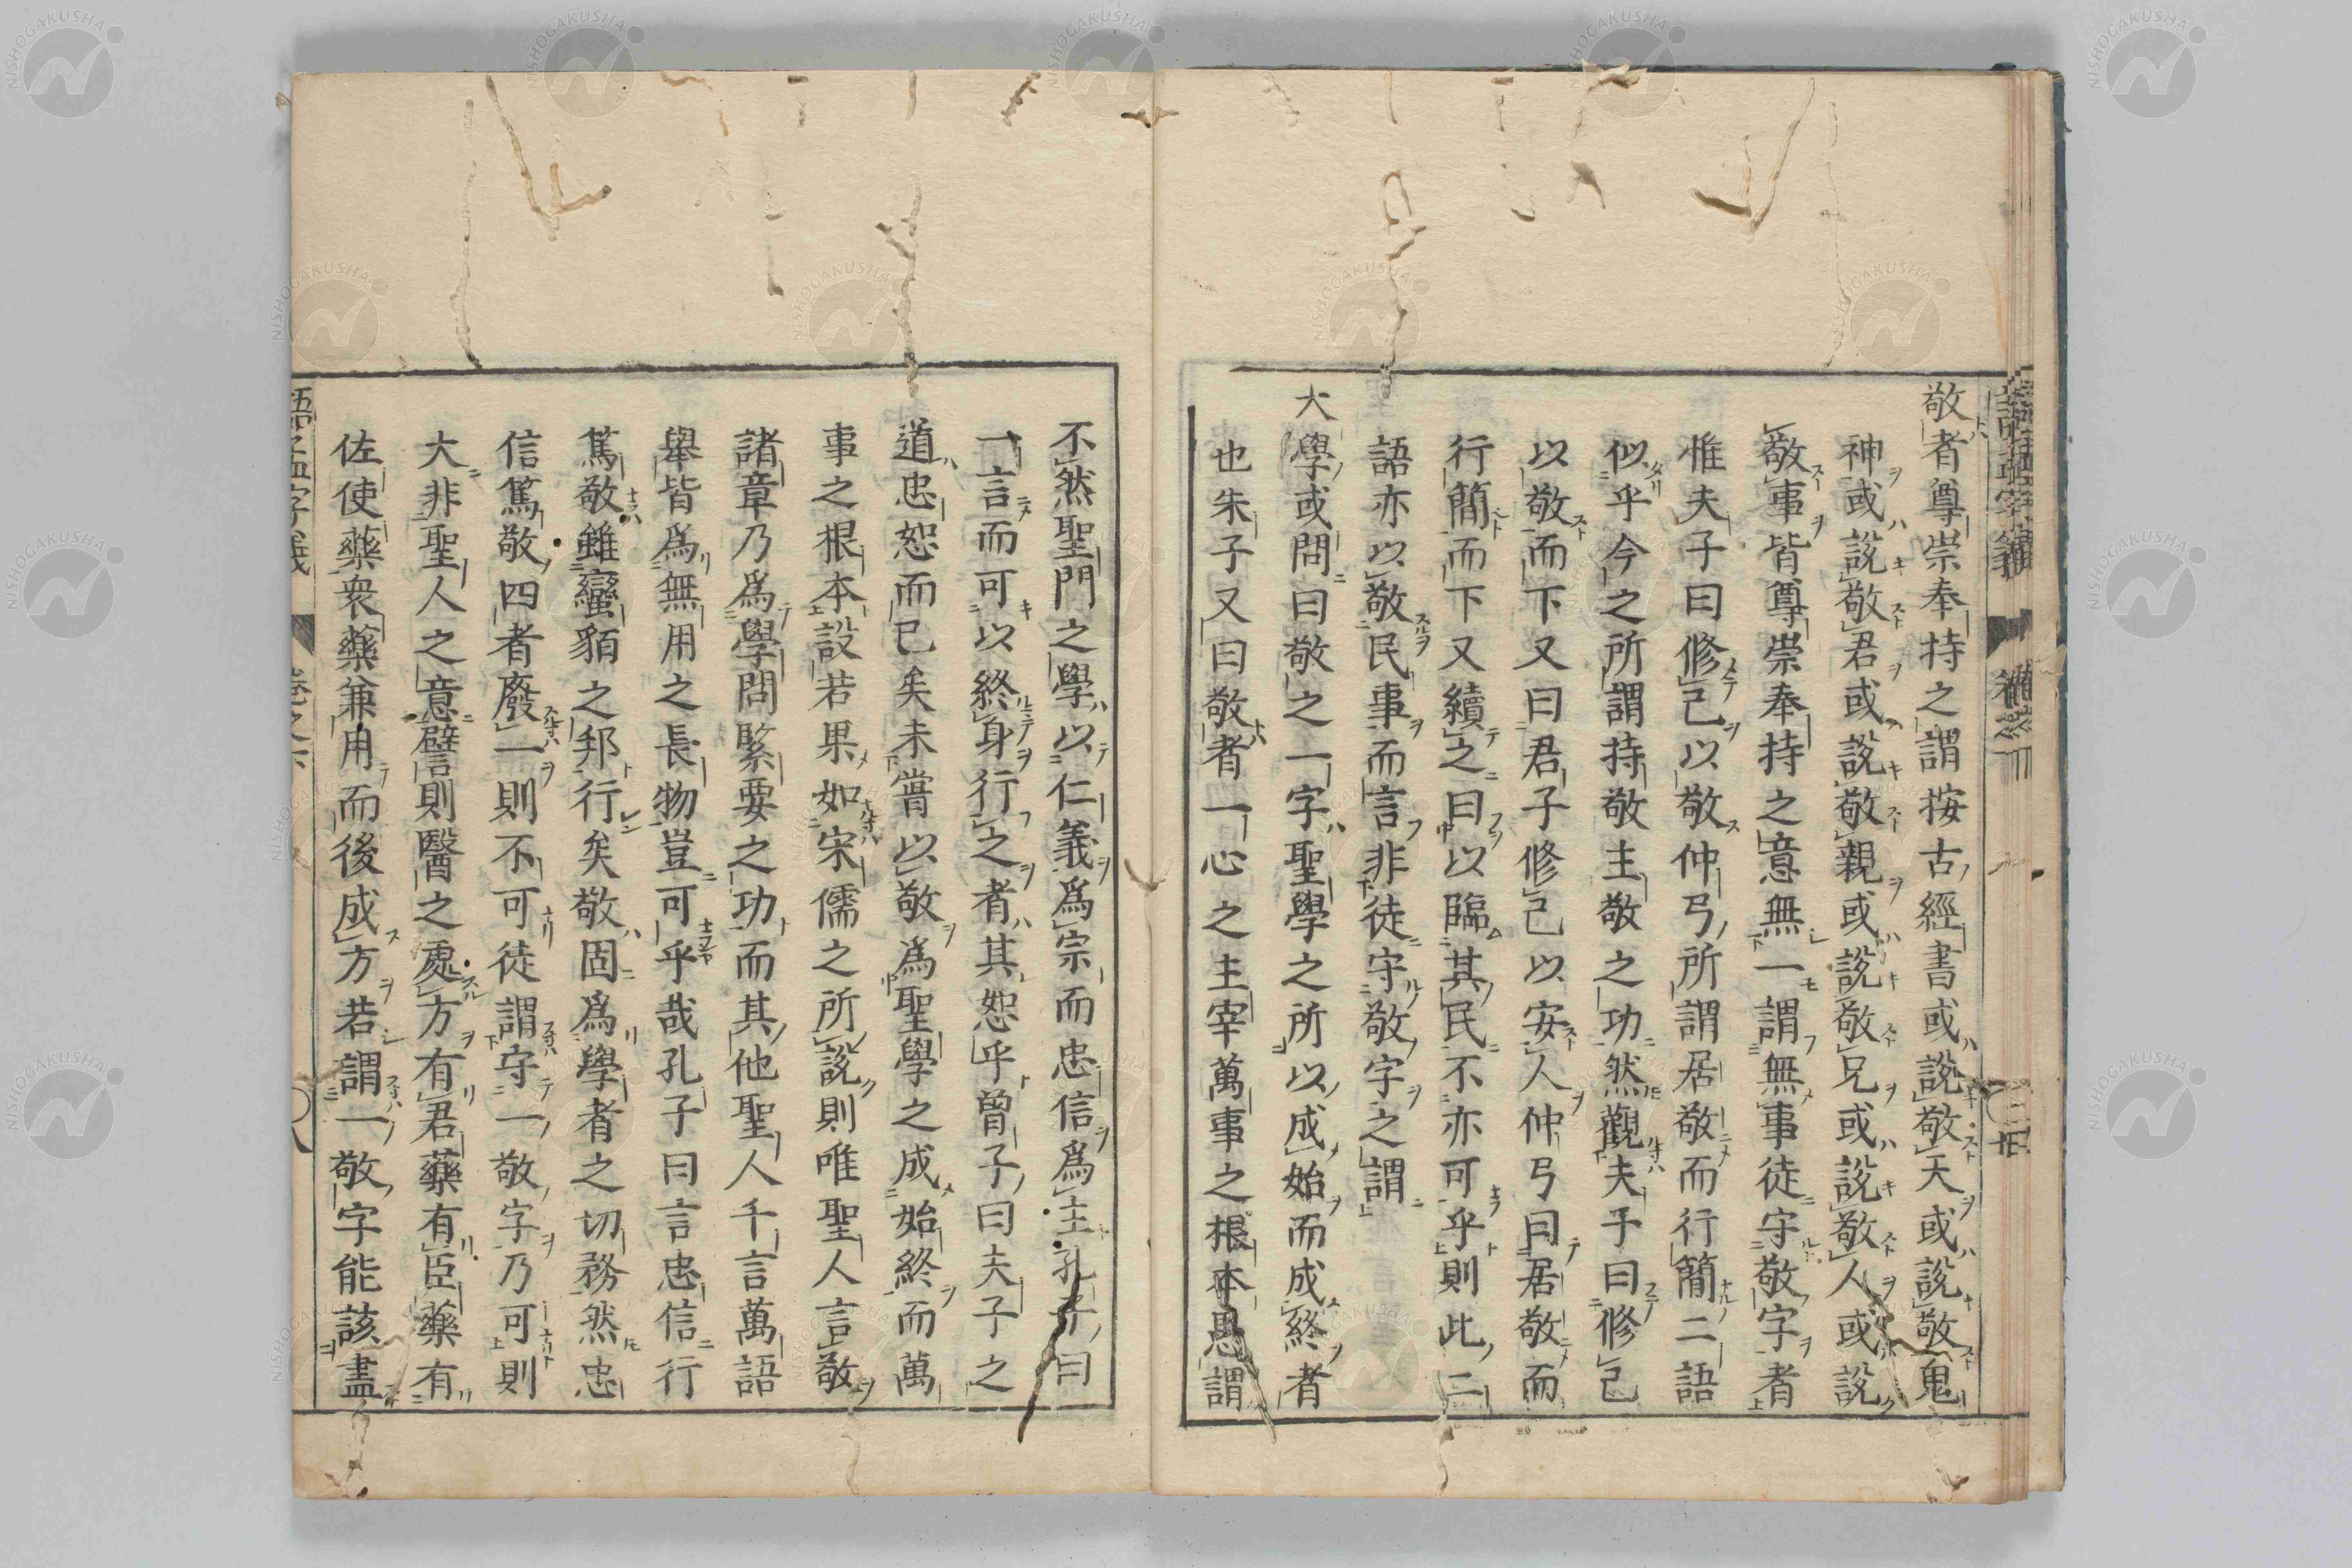 敬者尊崇奉持之謂按古經書或說敬天或說敬鬼
神或說敬君或說敬親或說敬兄或說敬人或說
敬事皆尊崇奉持之意無一謂無事徒守敬字者
惟夫子曰修己以敬仲弓所謂居敬而行簡二語
似乎今之所謂持敬主敬之功然觀夫子曰修己
以敬而下又曰君子修己以安人仲弓曰居敬而
行簡而下又續之曰以臨其民不亦可乎則此二
語亦以敬民事而言非徒守敬字之謂
大學或問曰敬之一字聖學之所以成始而成終者
也朱子又曰敬者一心之主宰萬事之根本愚謂
不然聖門之學以仁義爲宗而忠信爲主孔子曰
一言而可以終身行之者其恕乎曾子曰夫子之
道忠恕而已矣未嘗以敬爲聖學之成始終而萬
事之根本設若果如宋儒之所說則唯聖人言敬
諸章乃爲學問緊要之功而其他聖人千言萬語
舉皆爲無用之長物豈可乎哉孔子曰言忠信行
篤敬雖蠻貊之邦行矣敬固爲學者之切務然忠
信篤敬四者廢一則不可徒謂守一敬字乃可則
大非聖人之意譬則醫之處方有君藥有臣藥有
佐使藥衆藥兼用而後成方若謂一敬字能該盡
語孟字義 卷之下 八